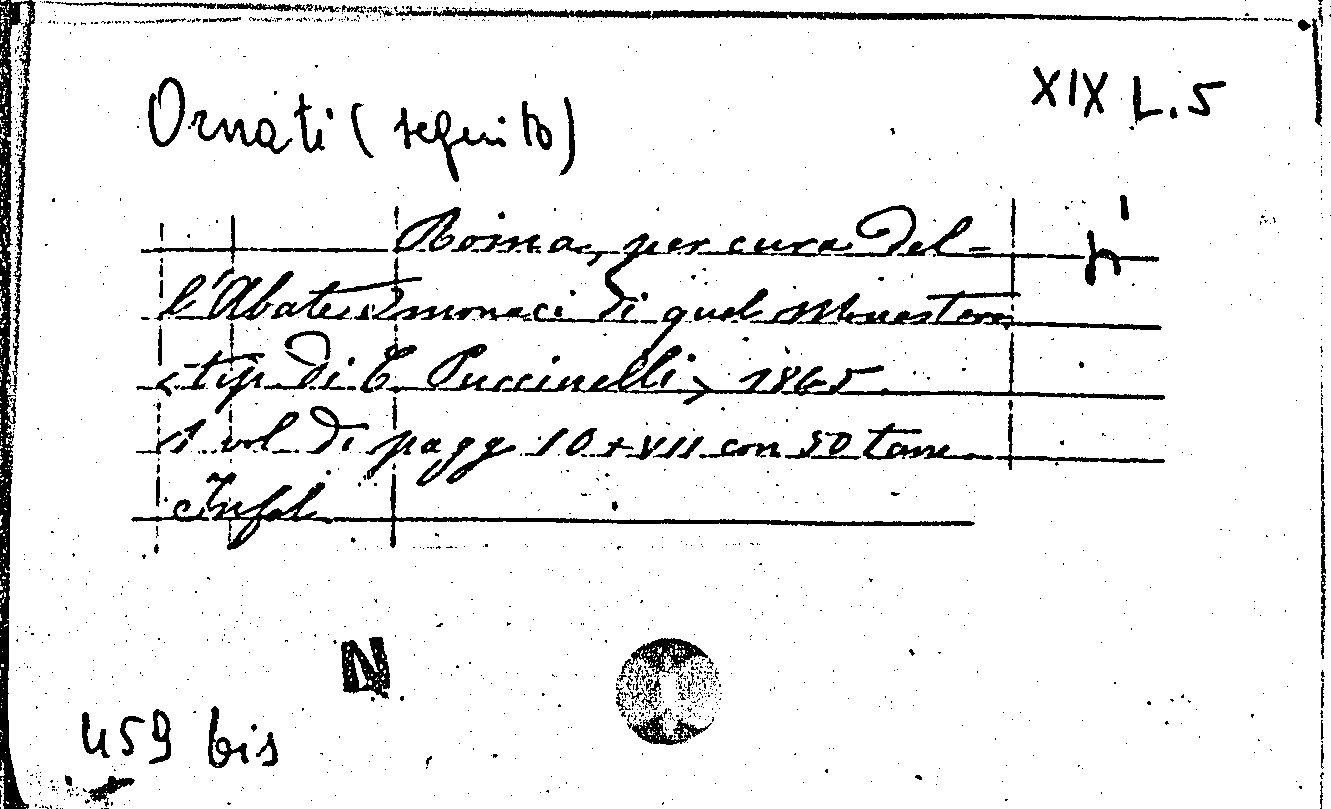 Ornati (seguito)
XIX L. 5
Roma, per cura del-
l'Abate monaci di quel
<tip di C Puccinelli> 1865
1 vol di pagg 10+VII con 50 tavv
Infol
N
459 bis